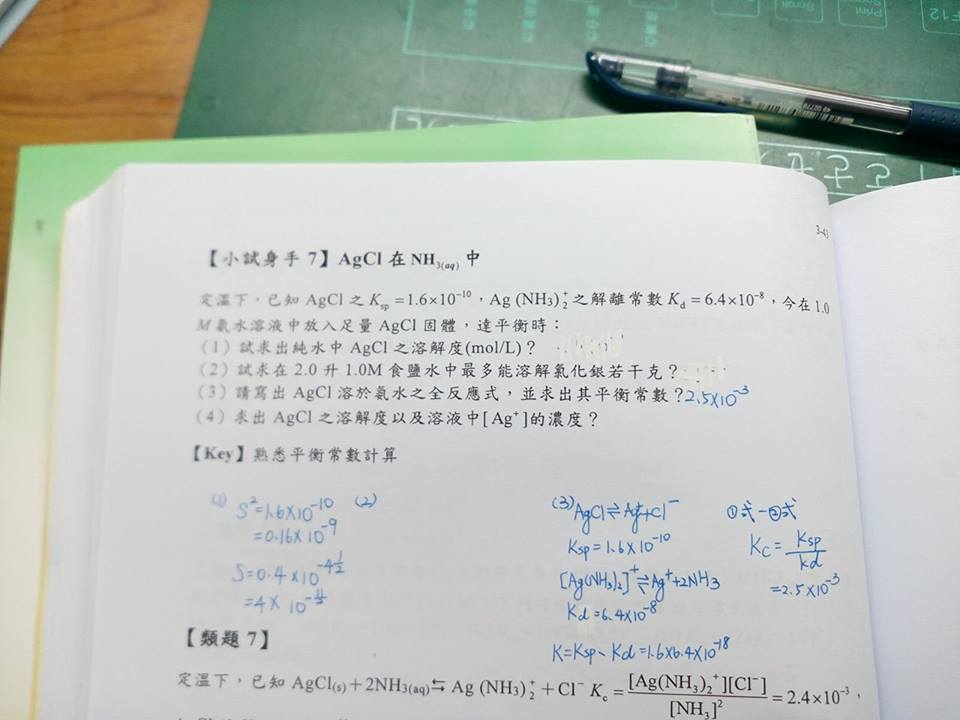 Print
Scroll
F12
3-43
【小試身手 7】AgCl 在 NH3(aq) 中
定溫下，已知 AgCl 之 Ksp =1.6×10⁻¹⁰，Ag (NH3)₂⁺ 之解離常數 Kd = 6.4×10⁻⁸，今在 1.0
M 氨水溶液中放入足量 AgCl 固體，達平衡時：
(1) 試求出純水中 AgCl 之溶解度(mol/L)？
(2) 試求在 2.0 升 1.0M 食鹽水中最多能溶解氯化銀若干克？
(3) 請寫出 AgCl 溶於氨水之全反應式，並求出其平衡常數？2.5×10⁻³
(4) 求出 AgCl 之溶解度以及溶液中[Ag⁺]的濃度？
【Key】熟悉平衡常數計算
(1) S²=1.6×10⁻¹⁰
=0.16×10⁻⁹
S=0.4×10^(-4½)
=4×
(2)
(3) AgCl⇌Ag⁺+Cl⁻
Ksp=1.6×10⁻¹⁰
[Ag(NH3)₂]⁺⇌Ag⁺+2NH3
Kd=6.4×10⁻⁸
K=Ksp-Kd=1.6×6.4×10⁻¹⁸
①式-②式
Kc=Ksp/kd
=2.5×10⁻³
【類題 7】
定溫下，已知 AgCl(s)＋2NH3(aq)⇆ Ag (NH3)₂⁺＋Cl⁻ Kc = [Ag(NH3)₂⁺][Cl⁻]/[NH3]² = 2.4×10⁻³，